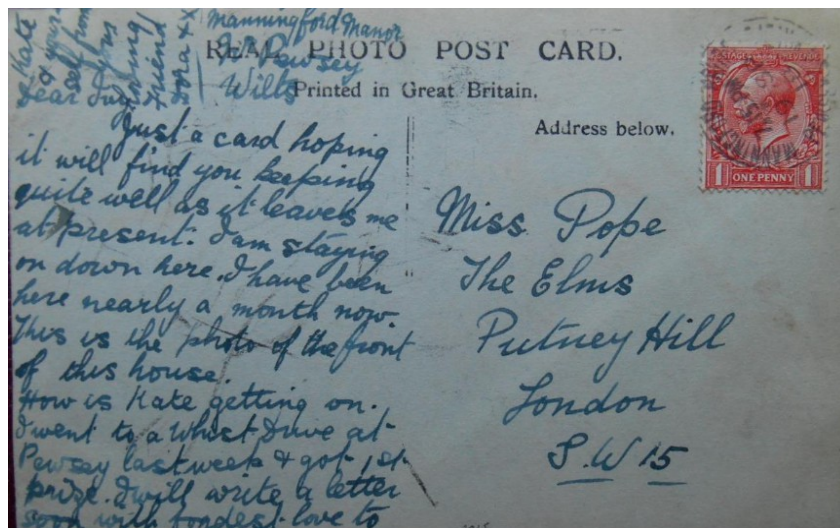 Manningford Manor
Nr Pewsey
Wilts
REAL PHOTO POST CARD.
Printed in Great Britain.
Address below.
POSTAGE REVENUE
ONE PENNY
1 1
MANNINGFORD
Dear
Just a card hoping
it will find you keeping
quite well as it leaves me
at present. I am staying
on down here. I have been
here nearly a month now
This is the photo of the front
of this house.
How is Kate getting on.
I went to a Whist Drive at
Pewsey last week & got 1st
prize. I will write a letter
soon with fondest love to
Kate
& your
self from
friend
Dora xx
Miss Pope
The Elms
Putney Hill
London
S.W 15